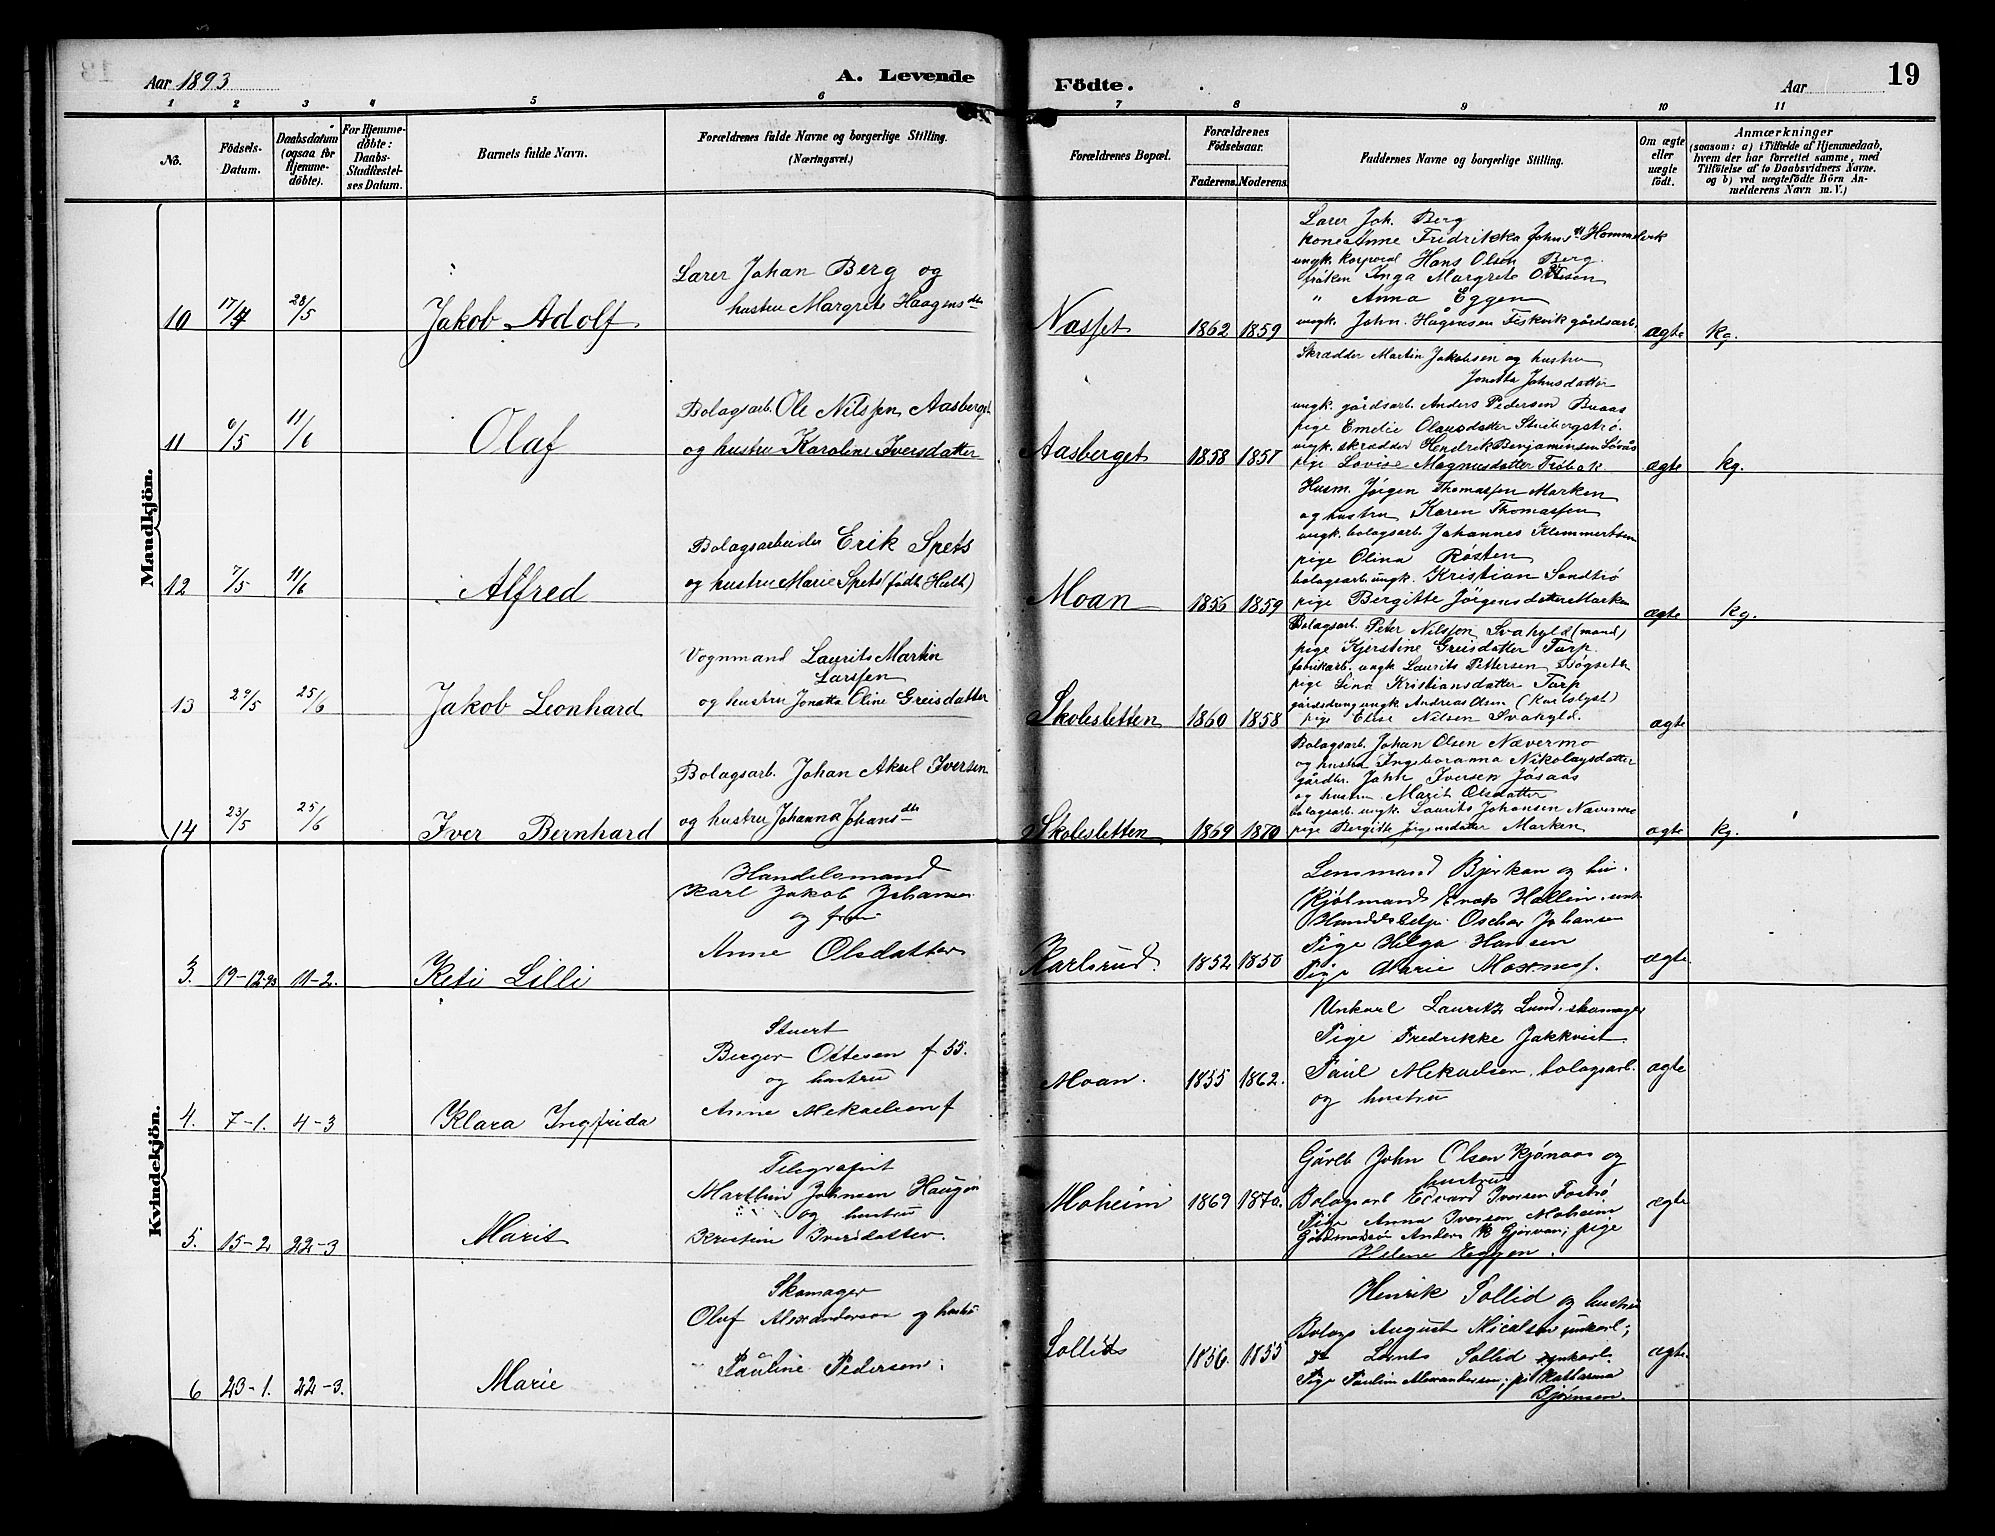 Aar 1893
A. Levende
Födte.
Aar
19
1 2 3 4 5 6 7 8 9 10 11
No.
Födsels-
Datum.
Daabsdatum
(ogsaa for
Hjemme-
döbte).
For Hjemme-
döbte:
Daabs-
Stadfæstel-
ses Datum.
Barnets fulde Navn.
Forældrenes fulde Navne og borgerlige Stilling.
(Næringsvei.)
Forældrenes Bopæl.
Forældrenes
Födselsaar.
Faderens. Moderens.
Faddernes Navne og borgerlige Stilling.
Om ægte
eller
uægte
födt.
Anmærkninger
(saasom: a) i Tilfælde af Hjemmedaab,
hvem der har forrettet samme, med
Tilföielse af to Daabsvidners Navne.
og b) ved uægtefödte Börn An-
melderens Navn m. V.)
Mandkjön.
10 17/4 28/5 Jakob Adolf
Lærer Johan Berg og
hustru Margrete Haagensdtr
Næsset 1862 1859
Lærer Joh. Berg
kone Anne Fredrikka Johns Hommelvik
ungk. korporal Hans Olsen Berg.
frøken Inga Margrete Ottesen
" Anna Eggen
ungk. John. Hågensen Fiskvik gårdsarb.
ægte kg.
11 6/5 11/6 Olaf
Bolagsarb. Ole Nilssen Aasberget
og hustru Karoline Iversdatter
Aasberget 1858 1857
Skrædder Martin Jakobsen og hustru
Jonetta Johnsdatter
ungk. gårdsarb. Anders Pedersen Buaas
pige Emelie Olausdatter Stubergstrø.
ungk. skrædder Hendrik Benjaminsen Løvås
pige Lovise Magnusdatter Trøbak
ægte kg.
12 7/5 11/6 Alfred
Bolagsarbeider Erik Spets
og hustru Marie Spets (født Hult)
Moan 1856 1859
Husm. Jörgen Thomassen Marken
og hustru Karen Thomassen
ungk. bolagsarb. Johannes Klemmertsen
pige Olina Røsten
bolagsarb. ungk. Kristian Sandtrø
pige Bergitte Jörgensdatter Marken
ægte kg.
13 29/5 25/6 Jakob Leonhard
Vognmand Laurits Martin
Larssen
og hustru Jonetta Oline Greisdatter
Skolesletten 1860 1858
Bolagsarb. Peter Nilssen Svahyld (mand)
pige Kjerstine Greisdatter Tarp.
fabrikarb. ungk. Laurits Pettersen Bøgseth
pige Lina Kristiansdatter Tarp
gårdsdreng ungk. Andreas Olsen (Karlslyst)
pige Elise Nilsen Svahyld.
ægte
14 23/5 25/6 Iver Bernhard
Bolagsarb. Johan Aksel Iversen
og hustru Johanna Johansdtr
Skolesletten 1869 1870
Bolagsarb. Johan Olsen Nævermo
og hustru Ingeboranna Nikolaysdatter
gårdbr. John Iversen Jøsaas
og hustru Marit Olsdatter
bolagsarb. ungk. Laurits Johansen Nævermo
pige Bergitte Jørgensdatter Marken
ægte kg.
Kvindekjön.
3. 19-12-93 11-2. Keti Lilli
Handelsmand
Karl Jakob Johansen
og fru
Anne Olsdatter
Karlsrud. 1852 1850
Lensmand Bjerkan og hu.
Kjøbmand Enok Hallin. unk
Handelsbetj. Oschar Johansen
Pige Helga Hansen
Pige Marie Moxness.
ægte.
4. 7-1. 4-3 Klara Ingfrida
Stuert
Berger Ottesen f 55.
og hustru
Anne Mekaelsen f
Moan. 1855 1862.
Unkarl Lauritz Lund, skomager
Pige Fredrikke Jakkvist
Paul Mekaelsen, bolagsarb.
og hustru
ægte
5. 15-2 22-3 Marit
Telegrafist
Marthin Johnsen Haugen
og hustru
Kristine Iversdatter.
Moheim 1869 1870.
Gårdb John Olsen Kjønaas og
hustru
Bolagsarb Edvard Iversen Fostrø
Pige Anna Iversen Moheim
Gårdmandssøn Anders K Gjervan; pige
Helene Eggen.
ægte
6 23-1. 22-3. Marie
Skomager
Oluf Alexandersen og hustru
Pauline Pedersen.
Sollids 1856. 1855
Henrik Sollid og hustru
Bolags August Micalsen unkarl;
Do Lorents Sollid unkarl.
Pige Pauline Alexandersen; pi Katharina
Bjørnsen.
ægte.